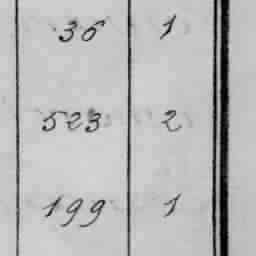 36 1
523 2
199 1